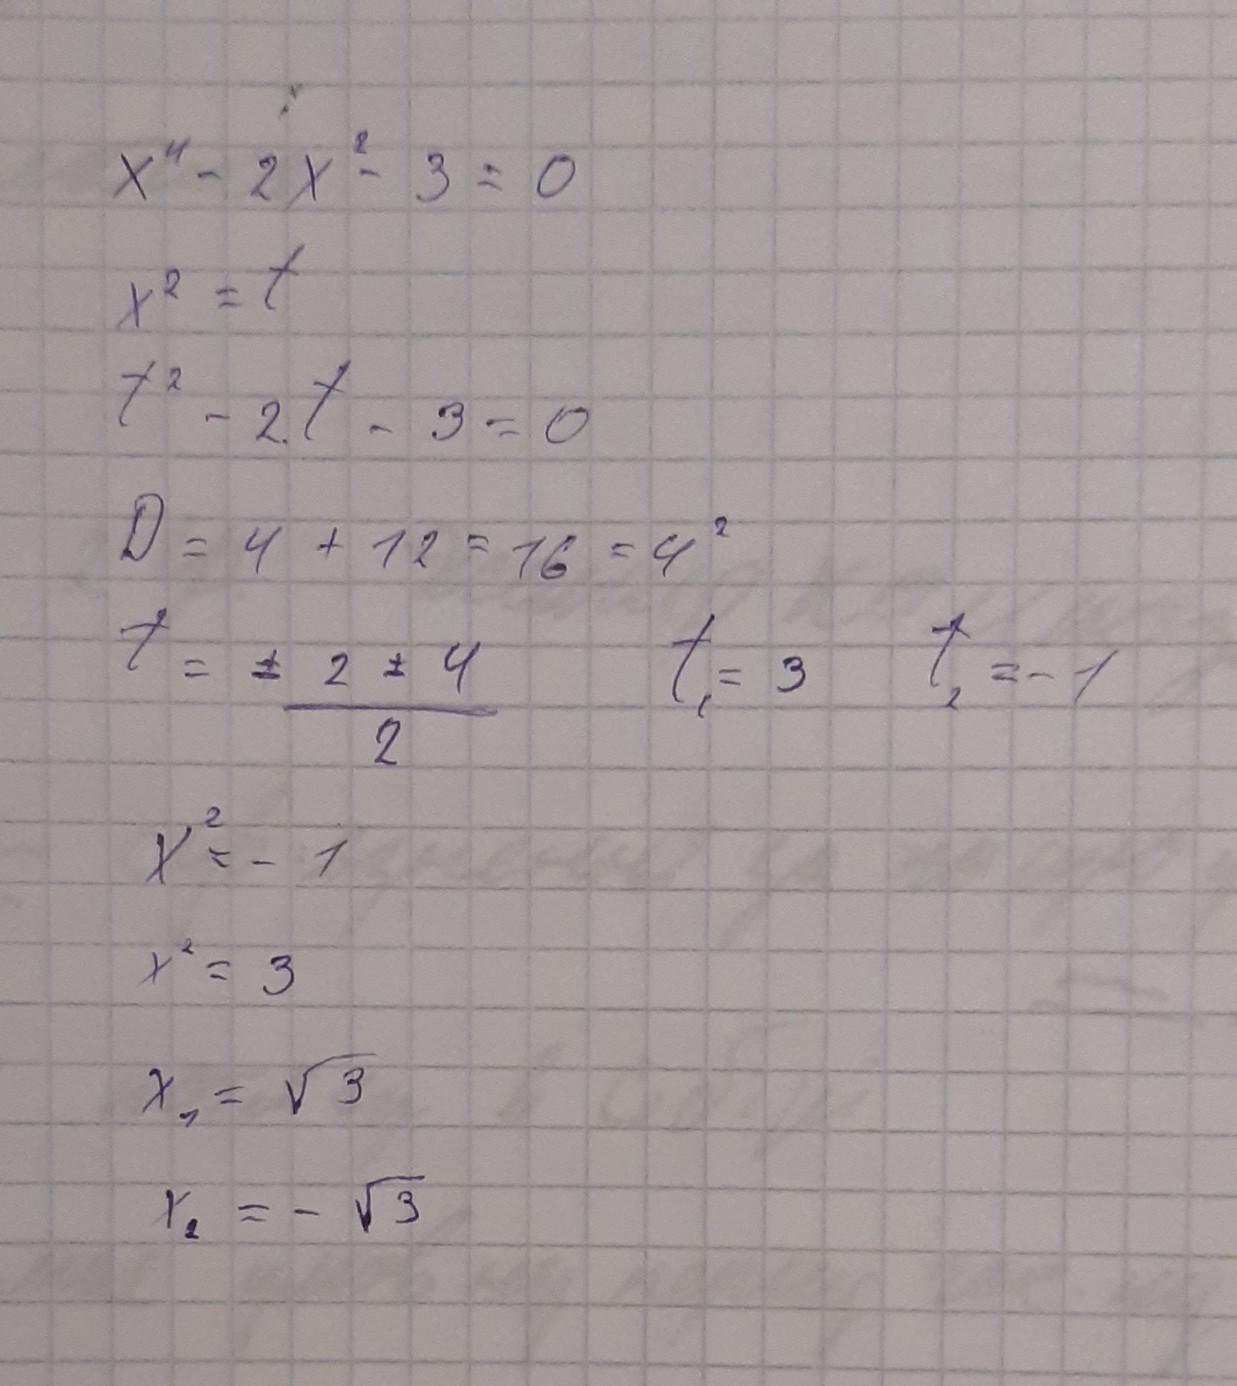 x⁴ - 2x² - 3 = 0
x² = t
t² - 2t - 3 = 0
D = 4 + 12 = 16 = 4²
t = ± 2 ± 4 / 2 t₁ = 3 t₂ = -1
x² = -1
x² = 3
x₁ = √3
x₂ = -√3